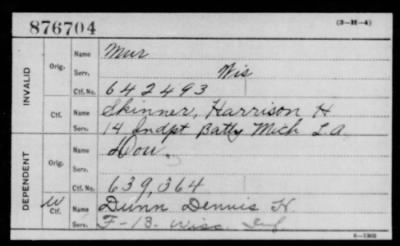 876704
(3-H-4)
INVALID
Orig.
Name Muir
Serv. Wis
Ctf. No. 642493
Ctf.
Name Skinner, Harrison H
Serv. 14 Indpt Batty Mich L.A.
DEPENDENT
Orig.
Name Dow.
Serv.
Ctf. No. 639,364
W Ctf.
Name Dunn Dennis H.
Serv. F-13. Wisc. Inf